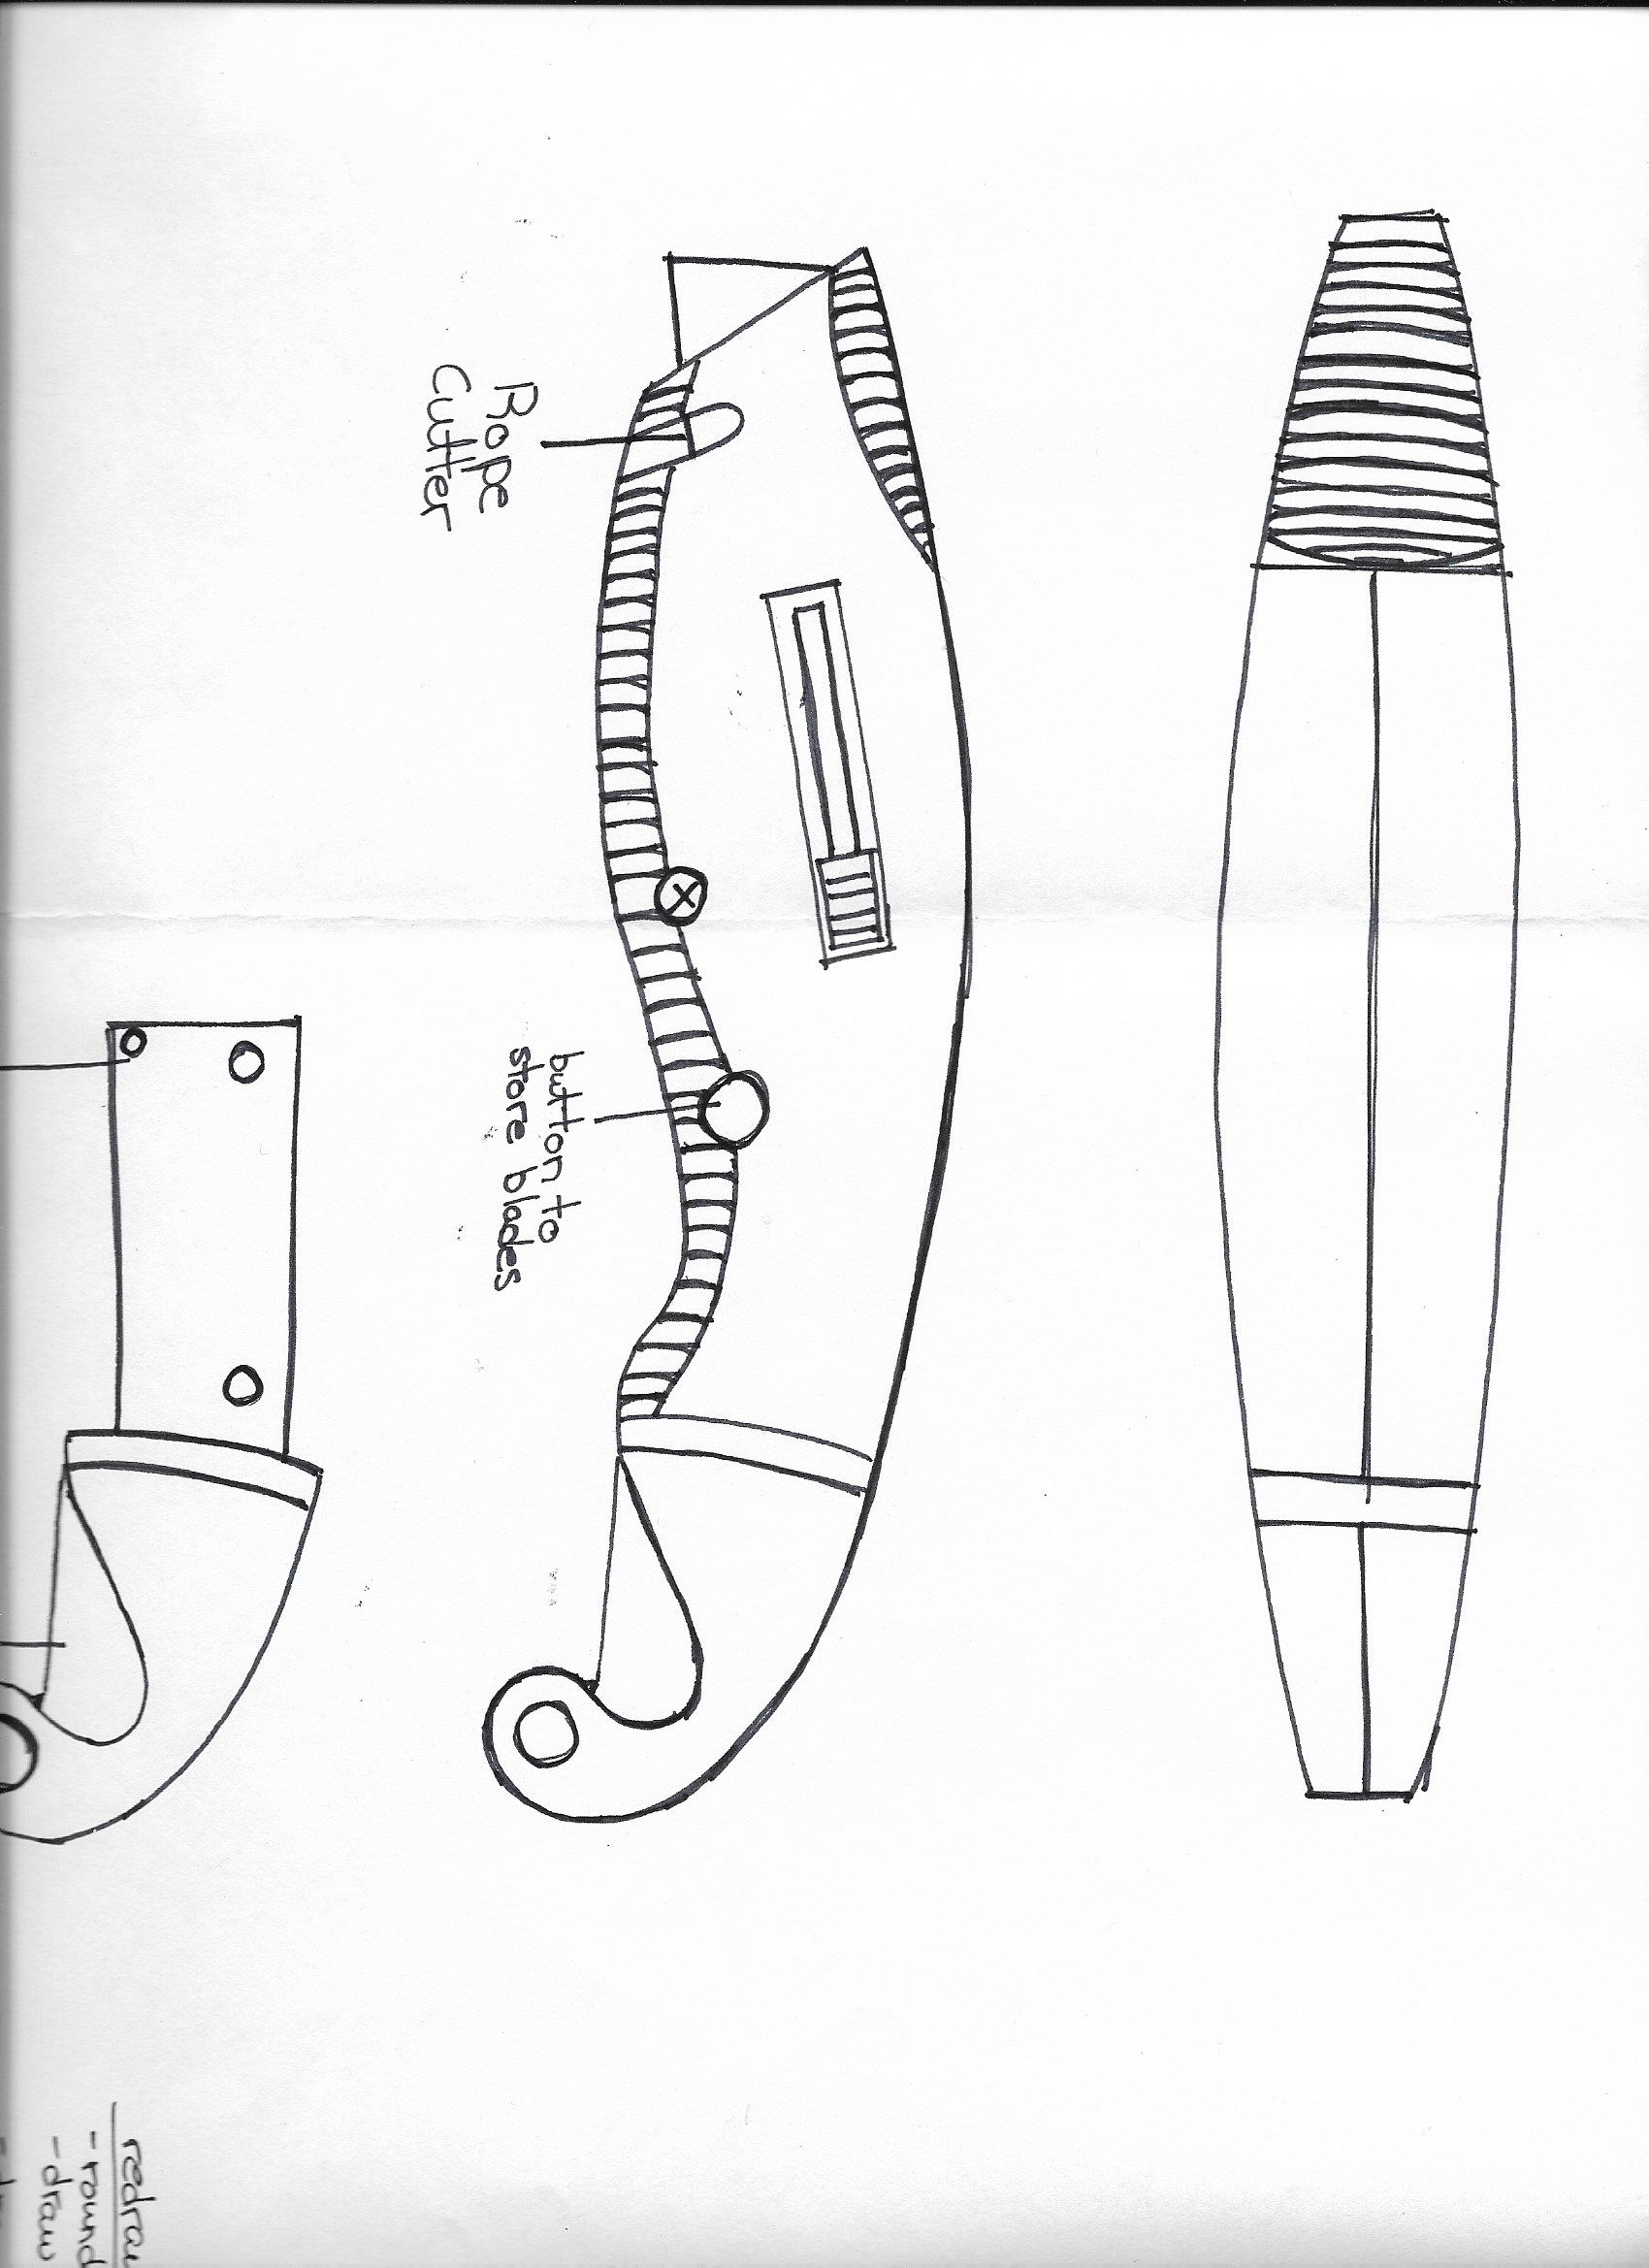 Rope
cutter
button to
store blades
- round
- draw